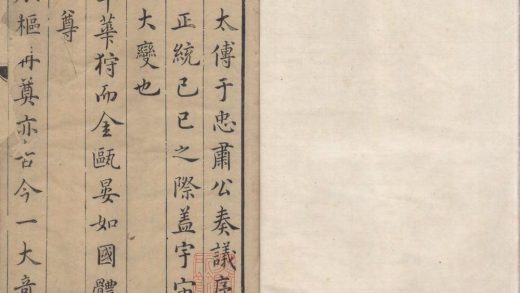 太傅于忠肅公奏議序
正統己巳之際蓋宇宙
大變也
華狩而金甌晏如國體
尊
樞再奠亦古今一大竒